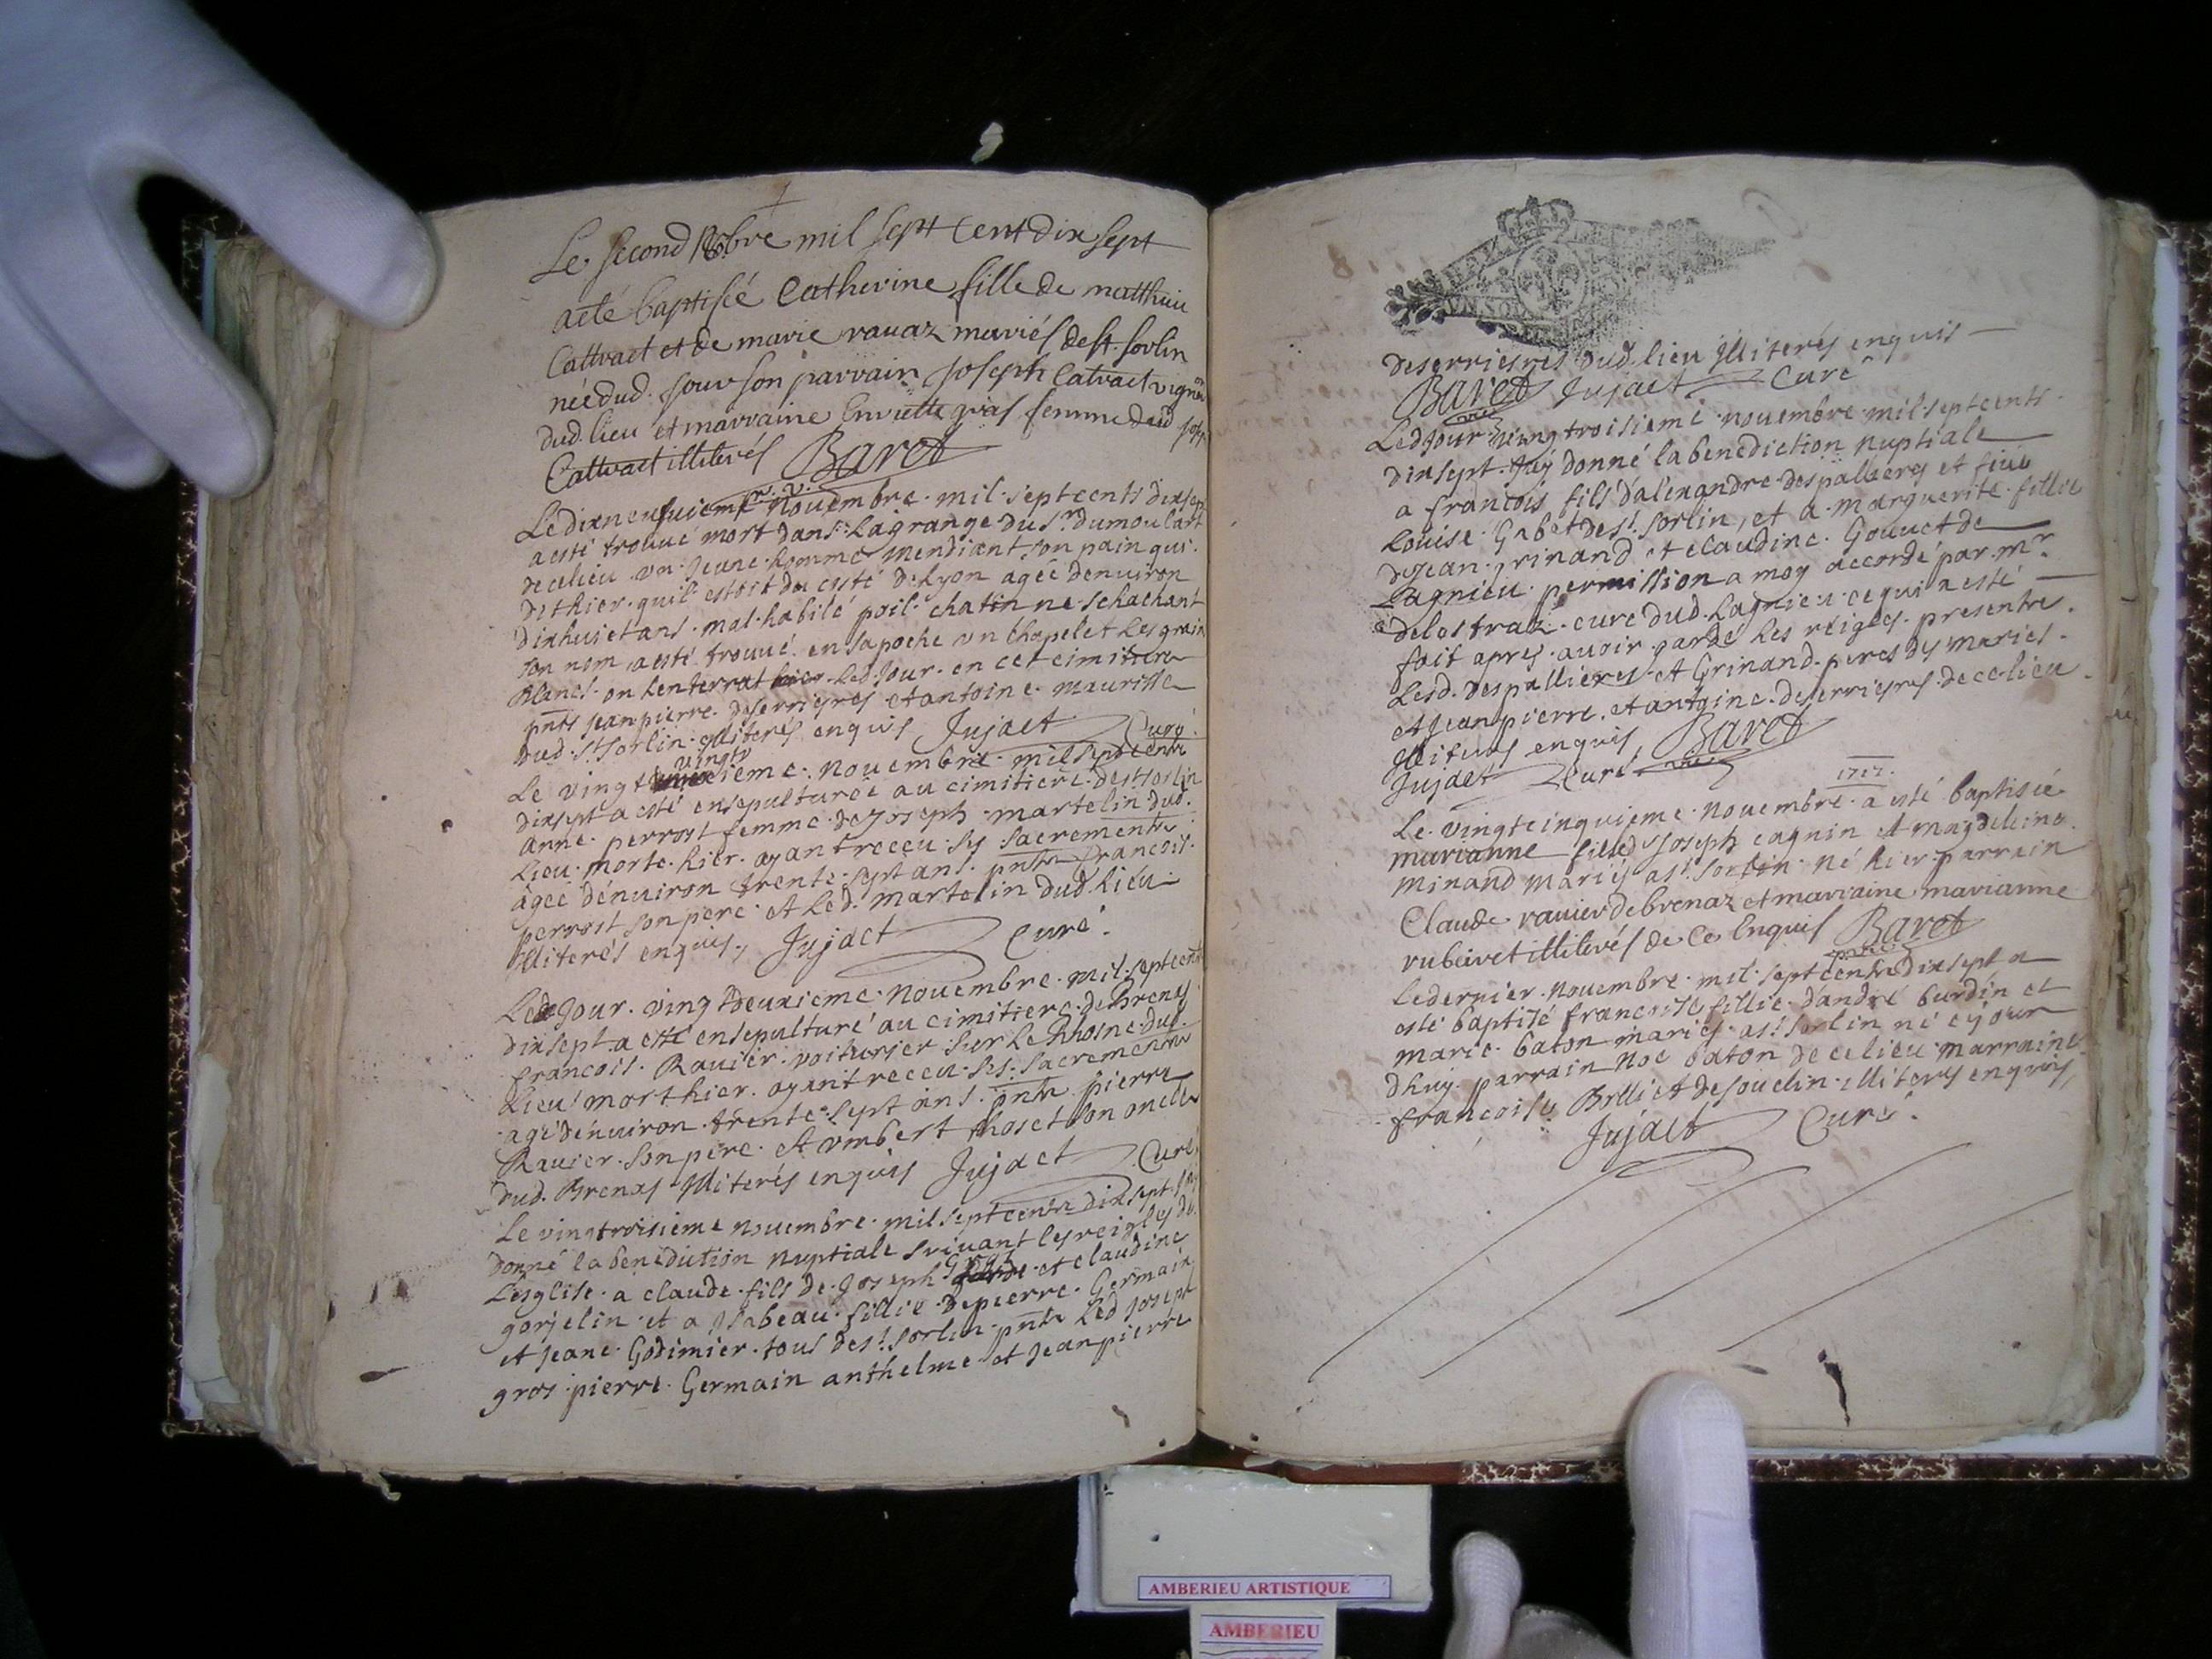 Le second 9bre mil sept cent dix sept
a eté baptisée Catherine fille de matthieu
Cattract et de marie ravaz mariés de st. sorlin
née dud. jour son parrain joseph Catract vigneron
dud. lieu et marraine Enviette gras femme dud jos.
Cattract illiterés Baret
Le dixneufuieme Nouembre mil septcents dixsept
a esté trouué mort dans la grange du sr. dumoulart
de ce lieu un jeune homme mendiant son pain qui
dit hier quil estoit du costé de Lyon agée denuiron
dixhuict ans mal habilé poil chatin ne schachant
son nom a esté trouué en sa poche un chapelet les grain
blancs on lenterrat led. jour en cet cimitiere
pnts jean pierre deserriesres et antoine maurisse
dud. st. sorlin illiterés enquis Jujact Curé
Le vingt vingt ieme nouembre mil septcents
dixsept a esté ensepulturée au cimitiere de st. sorlin
anne perrost femme de joseph martelin dud.
lieu morte hier ayant receu ses sacrements
âgée dénuiron trente sept ans pnts francois
perrost son pere et led. martelin dud. lieu
illiterés enquis, Jujact Curé.
Led. jour vingt deuxieme nouembre mil septcents
dixsept a esté ensepulturé au cimitiere de brenas
francois Rauier voiturier sur le Rhosne dud.
lieu mort hier ayant receu ses sacrements
agé dénuiron trente sept ans pnts pierre
Rauier son pere et umbert thoset son oncle
dud. Brenas illiterés enquis Jujact Curé
Le vingtroisieme nouembre mil septcents dixsept jay
donné la benediction nuptiale suiuant les reigles de
Lesglise a claude fils de joseph Gros et claudine
gorjelin et a jsabeau fillie de pierre Germain
et jeane Godimier tous de st. sorlin pnts led joseph
gros pierre Germain anthelme et jean pierre
deserriesres dud. lieu illiterés enquis
Baret Jujact Curé
Led jour vingtroisieme nouembre mil septcents
dixsept jay donné la benediction nuptiale
a francois fils d'alexandre despallieres et
Louise Gabet de st. sorlin, et a marguerite fillie
de jean grinand et claudine Gouuet de
Lagnieu permission a moy accordé par mr.
delostraz curé dud. Lagnieu ce qui a esté
fait apres auoir gardé les reigles presents
lesd. despallieres et Grinand peres des mariés
et jean pierre et antoine deserriesres de ce lieu
illiterés enquis, Baret
Jujact Curé
1717.
Le vingtcinquieme nouembre a esté baptisée
marianne fille de joseph cagnin et magdeleine
minand mariés a st. sorlin né hier parrain
Claude rauier de brenaz et marraine marianne
rubeiret illiterés de ce Enquis Baret
Le dernier nouembre mil septcents dixsept a
esté baptisé francoise fillie d'andré burdin et
marie baton mariés a st. sorlin né ce jour
dhuy parrain noé baton de ce lieu marraine
francoise Brilliet de souclin illiterés enquis,
Jujact Curé.
AMBERIEU ARTISTIQUE
AMBERIEU